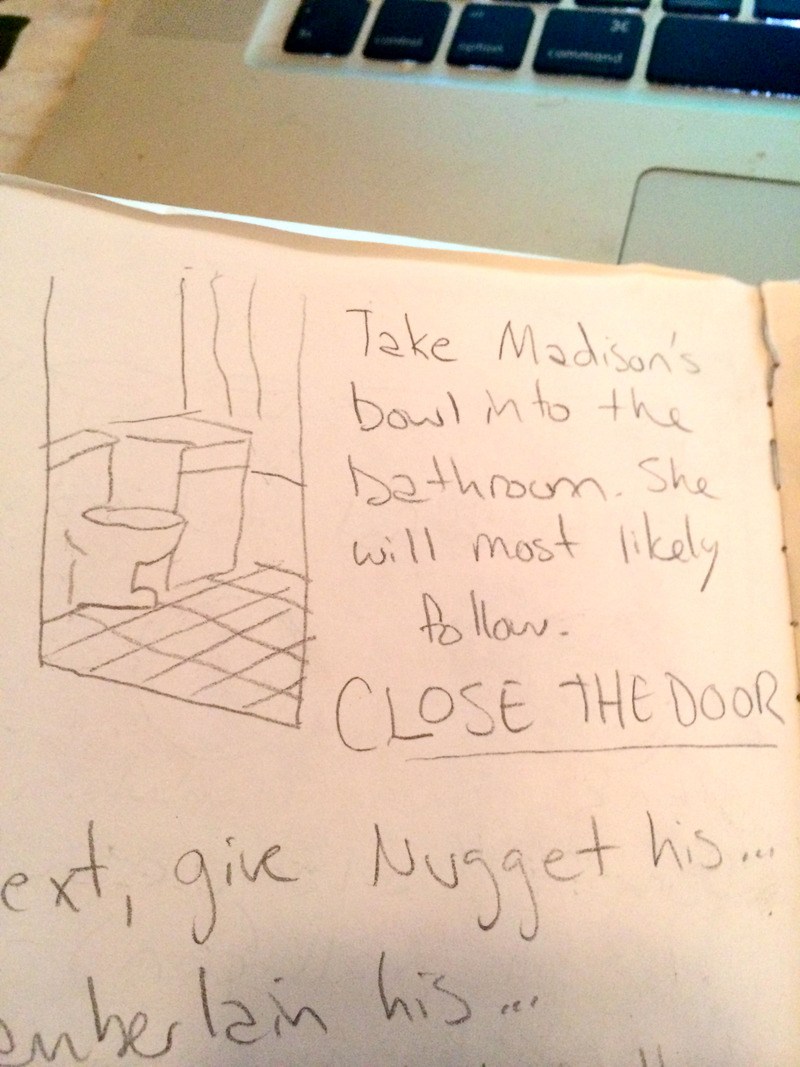 control
option
⌘
command
Take Madison's
bowl into the
bathroom. She
will most likely
follow.
CLOSE THE DOOR
ext, give Nugget his...
amberlain his...